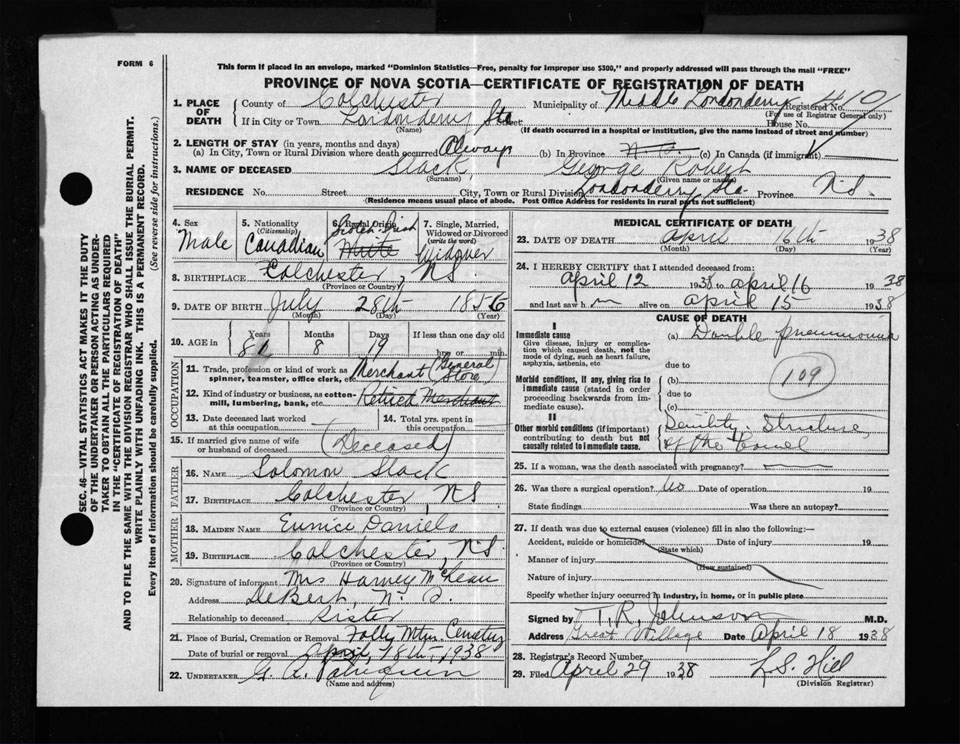 FORM 6
This form if placed in an envelope, marked "Dominion Statistics—Free, penalty for improper use $300," and properly addressed will pass through the mail "FREE"
PROVINCE OF NOVA SCOTIA—CERTIFICATE OF REGISTRATION OF DEATH
1. PLACE OF DEATH
County of Colchester Municipality of Middle Londonderry Registered No.
(For use of Registrar General only)
If in City or Town Londonderry Sta Street House No.
(Name) (If death occurred in a hospital or institution, give the name instead of street and number)
2. LENGTH OF STAY (in years, months and days)
(a) In City, Town or Rural Division where death occurred Always (b) In Province (c) In Canada (if immigrant)
3. NAME OF DECEASED Slack George Robert
(Surname) (Given name or names)
RESIDENCE No. Street City, Town or Rural Division Londonderry Sta. Province N.S.
(Residence means usual place of abode. Post Office Address for residents in rural parts not sufficient)
4. Sex Male
5. Nationality (Citizenship) Canadian
6. Racial Origin Scotch-Irish White
7. Single, Married, Widowed or Divorced (write the word) Widower
8. BIRTHPLACE Colchester, N.S.
(Province or Country)
9. DATE OF BIRTH July 28th 1856
(Month) (Day) (Year)
10. AGE in Years 81 Months 8 Days 19 If less than one day old hrs. or min.
OCCUPATION
11. Trade, profession or kind of work as spinner, teamster, office clerk, etc. Merchant (General Store)
12. Kind of industry or business, as cotton-mill, lumbering, bank, etc. Retired Merchant
13. Date deceased last worked at this occupation
14. Total yrs. spent in this occupation
15. If married give name of wife or husband of deceased (Deceased)
FATHER
16. NAME Solomon Slack
17. BIRTHPLACE Colchester, N.S.
(Province or Country)
MOTHER
18. MAIDEN NAME Eunice Daniels
19. BIRTHPLACE Colchester, N.S.
(Province or Country)
20. Signature of informant Mrs Harvey McLean
Address DeBert, N.S.
Relationship to deceased Sister
21. Place of Burial, Cremation or Removal Folly Mtn. Cemetery
Date of burial or removal April, 18th, 1938
22. UNDERTAKER G. A.
(Name and address)
MEDICAL CERTIFICATE OF DEATH
23. DATE OF DEATH April 16th 1938
(Month) (Day)
24. I HEREBY CERTIFY that I attended deceased from:
April 12 1938 to April 16 1938
and last saw h m alive on April 15 1938
CAUSE OF DEATH
I
Immediate cause
Give disease, injury or complication which caused death, not the mode of dying, such as heart failure, asphyxia, asthenia, etc.
(a) Double pneumonia
due to
Morbid conditions, if any, giving rise to immediate cause (stated in order proceeding backwards from immediate cause).
(b)
due to
(c)
109
II
Other morbid conditions (if important) contributing to death but not causally related to immediate cause.
Senility. Stricture of the bowel
25. If a woman, was the death associated with pregnancy?
26. Was there a surgical operation? No Date of operation 19
State findings Was there an autopsy?
27. If death was due to external causes (violence) fill in also the following:—
Accident, suicide or homicide? Date of injury 19
(State which)
Manner of injury
(How sustained)
Nature of injury
Specify whether injury occurred in industry, in home, or in public place
Signed by T. R. Johnson M.D.
Address Great Village Date April 18 1938
28. Registrar's Record Number
29. Filed April 29 1938 L.S. Hill
(Division Registrar)
SEC. 46—VITAL STATISTICS ACT MAKES IT THE DUTY OF THE UNDERTAKER OR PERSON ACTING AS UNDERTAKER TO OBTAIN ALL THE PARTICULARS REQUIRED IN THE "CERTIFICATE OF REGISTRATION OF DEATH" AND TO FILE THE SAME WITH THE DIVISION REGISTRAR WHO SHALL ISSUE THE BURIAL PERMIT.
WRITE PLAINLY WITH UNFADING INK. THIS IS A PERMANENT RECORD.
Every item of information should be carefully supplied. (See reverse side for instructions)